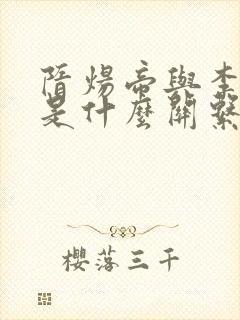 隋煬帝與李
是什麼關繫
櫻落三千